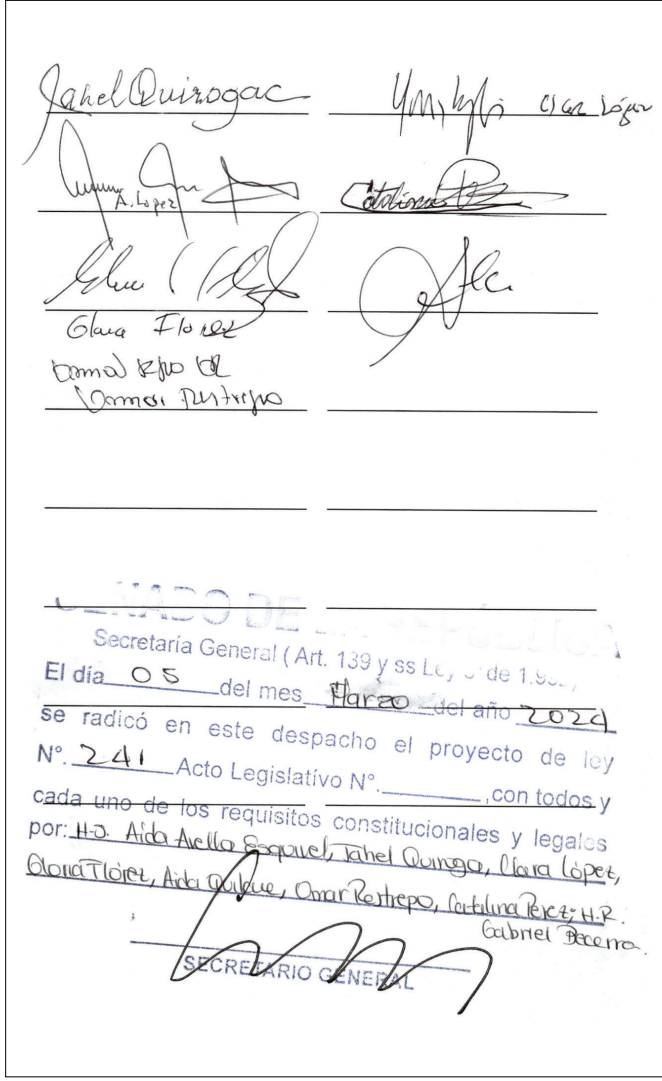 Jahel Quirogac
Clara López
A. Lopez
Catalina
Gloria Florez
Omar Restrepo
SENADO DE LA REPÚBLICA
Secretaría General ( Art. 139 y ss Ley 5ª de 1.992)
El día 05 del mes Marzo del año 2024
se radicó en este despacho el proyecto de ley
N°. 241 Acto Legislativo N°. ,con todos y
cada uno de los requisitos constitucionales y legales
por: H.S. Aida Avella Esquivel, Jahel Quiroga, Clara López,
Gloria Flórez, Aida Quilcue, Omar Restrepo, Catalina Pérez; H.R.
Gabriel Becerra.
SECRETARIO GENERAL